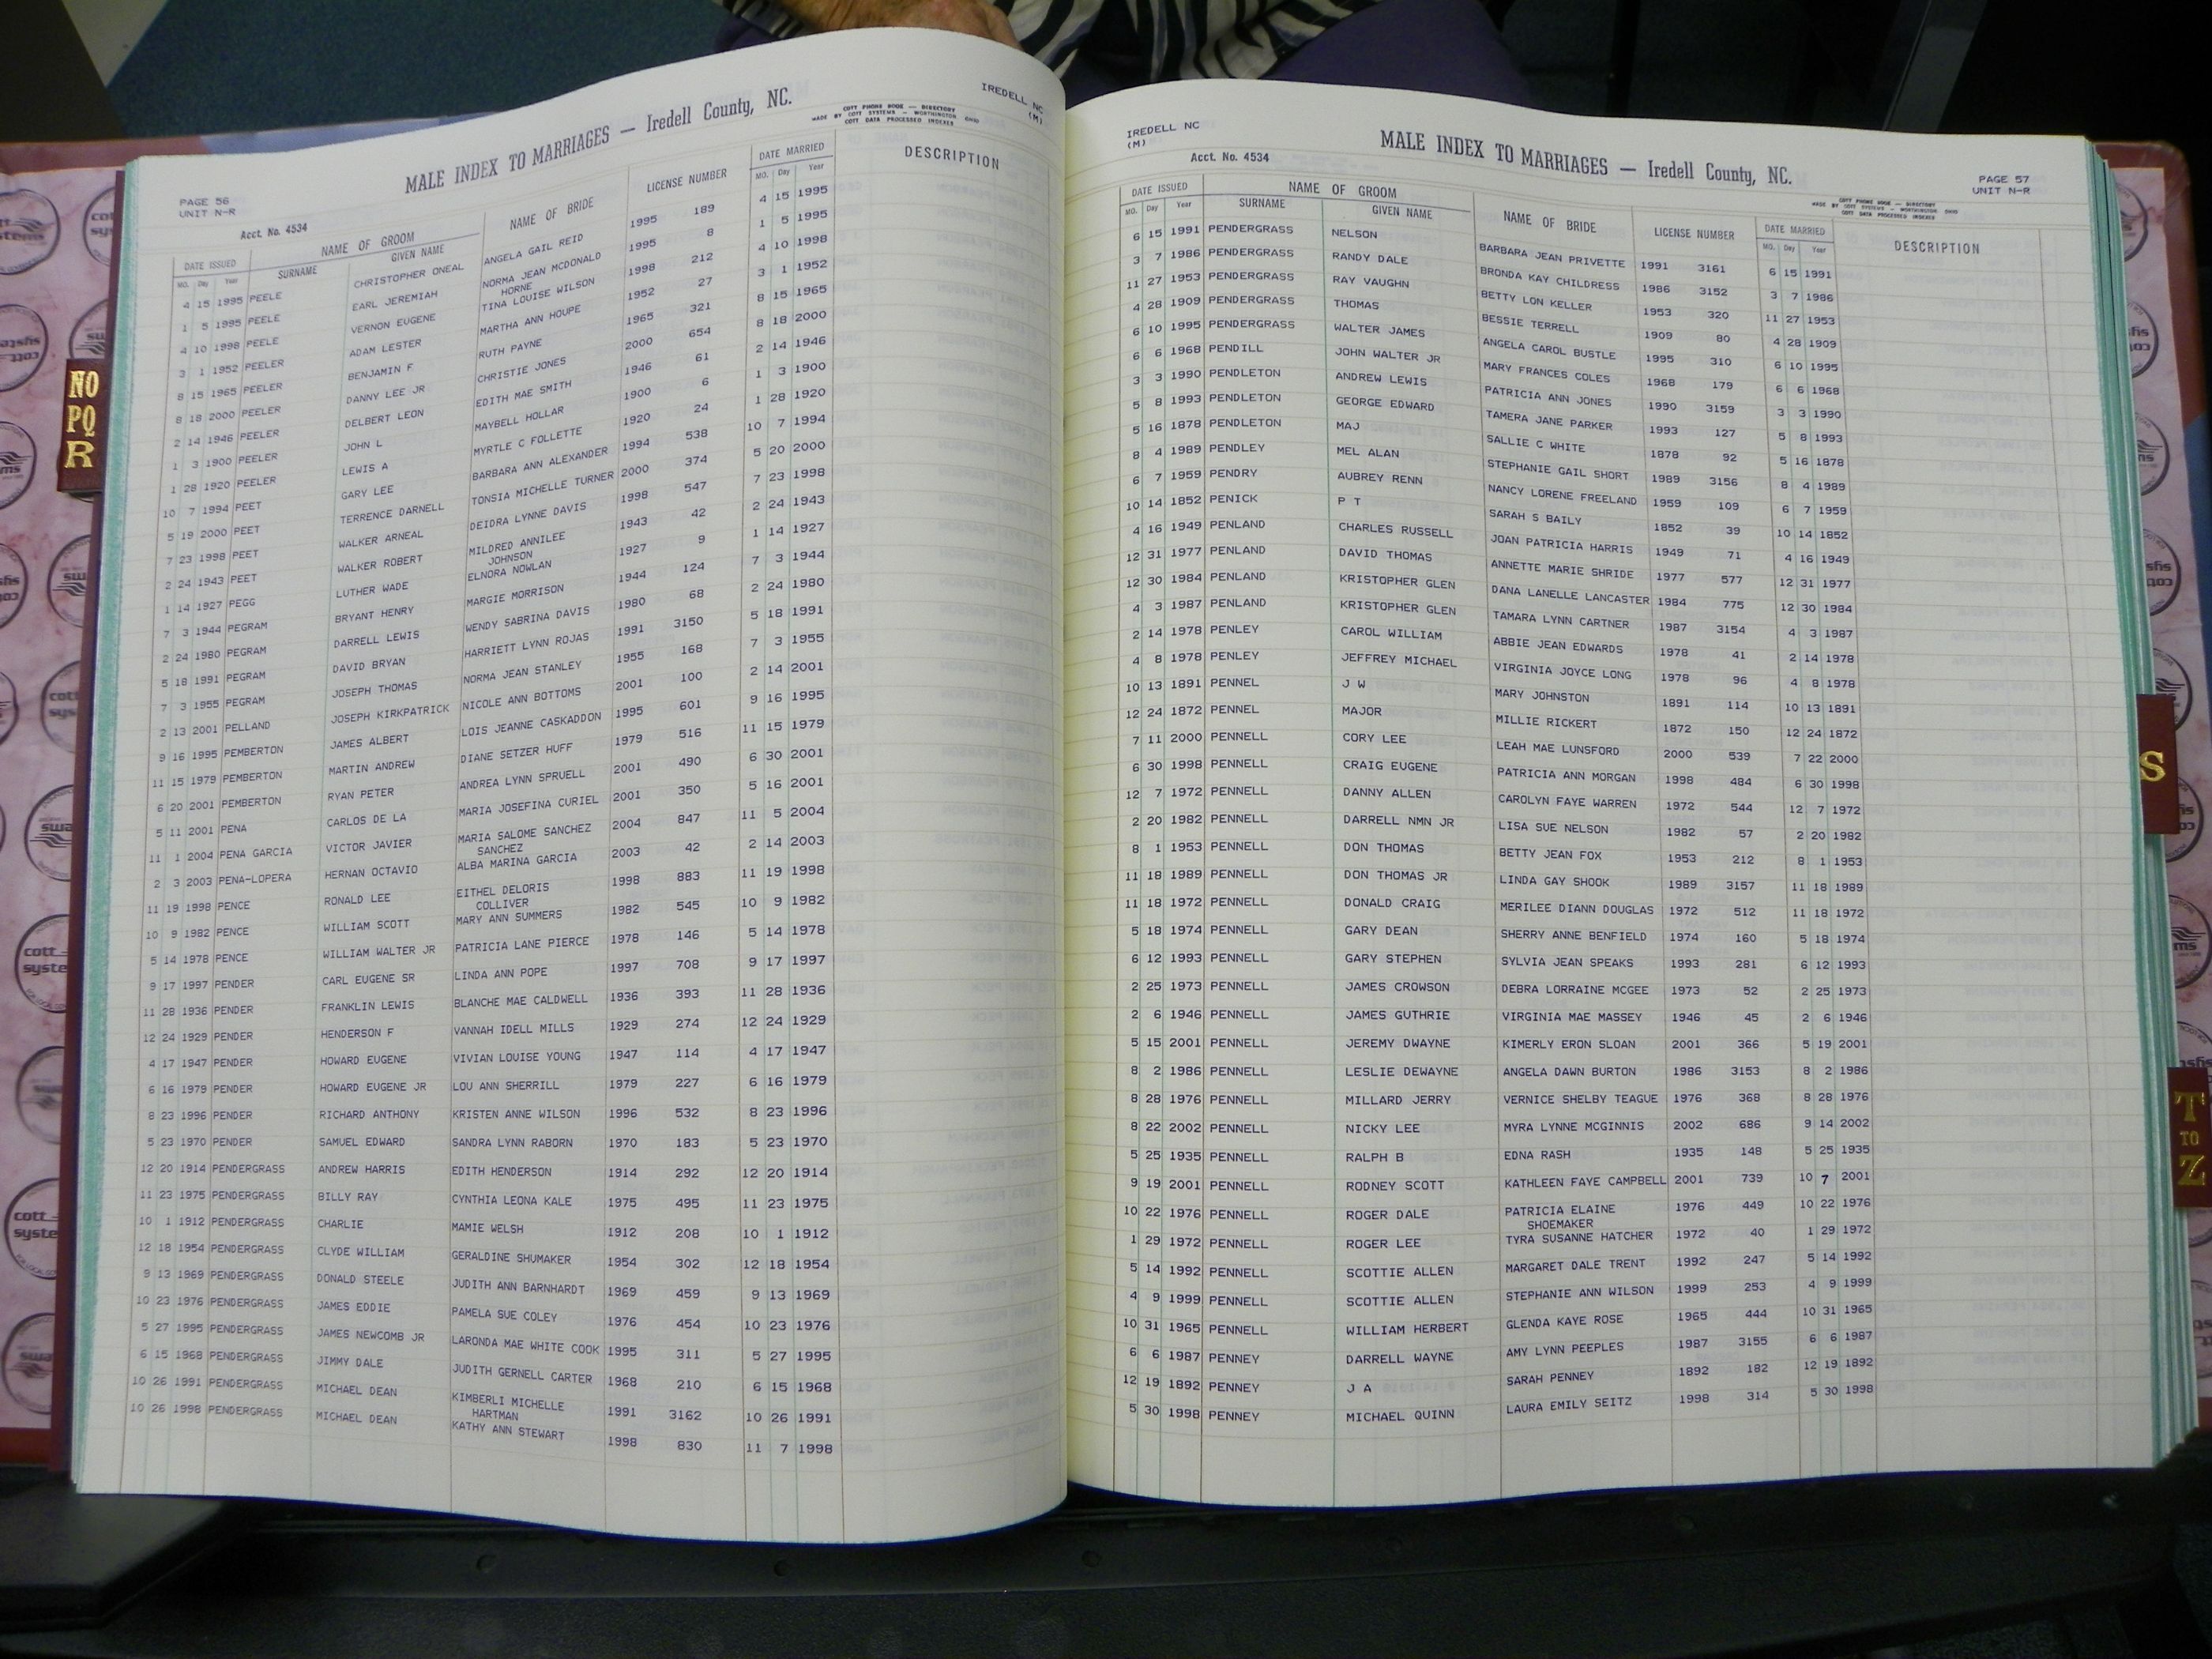 IREDELL NC
(M)
MALE INDEX TO MARRIAGES — Iredell County, NC.
COTT PHONE BOOK — DIRECTORY
MADE BY COTT SYSTEMS — WORTHINGTON OHIO
COTT DATA PROCESSED INDEXES
PAGE 56
UNIT N-R
Acct. No. 4534
DATE ISSUED NAME OF GROOM NAME OF BRIDE LICENSE NUMBER DATE MARRIED DESCRIPTION
MO. Day Year SURNAME GIVEN NAME MO. Day Year
4 15 1995 PEELE CHRISTOPHER ONEAL ANGELA GAIL REID 1995 189 4 15 1995
1 5 1995 PEELE EARL JEREMIAH NORMA JEAN MCDONALD 1995 8 1 5 1995
HORNE
4 10 1998 PEELE VERNON EUGENE TINA LOUISE WILSON 1998 212 4 10 1998
3 1 1952 PEELER ADAM LESTER MARTHA ANN HOUPE 1952 27 3 1 1952
8 15 1965 PEELER BENJAMIN F RUTH PAYNE 1965 321 8 15 1965
8 18 2000 PEELER DANNY LEE JR CHRISTIE JONES 2000 654 8 18 2000
2 14 1946 PEELER DELBERT LEON EDITH MAE SMITH 1946 61 2 14 1946
1 3 1900 PEELER JOHN L MAYBELL HOLLAR 1900 6 1 3 1900
1 28 1920 PEELER LEWIS A MYRTLE C FOLLETTE 1920 24 1 28 1920
10 7 1994 PEET GARY LEE BARBARA ANN ALEXANDER 1994 538 10 7 1994
5 19 2000 PEET TERRENCE DARNELL TONSIA MICHELLE TURNER 2000 374 5 20 2000
7 23 1998 PEET WALKER ARNEAL DEIDRA LYNNE DAVIS 1998 547 7 23 1998
2 24 1943 PEET WALKER ROBERT MILDRED ANNILEE 1943 42 2 24 1943
JOHNSON
1 14 1927 PEGG LUTHER WADE ELNORA NOWLAN 1927 9 1 14 1927
7 3 1944 PEGRAM BRYANT HENRY MARGIE MORRISON 1944 124 7 3 1944
2 24 1980 PEGRAM DARRELL LEWIS WENDY SABRINA DAVIS 1980 68 2 24 1980
5 18 1991 PEGRAM DAVID BRYAN HARRIETT LYNN ROJAS 1991 3150 5 18 1991
7 3 1955 PEGRAM JOSEPH THOMAS NORMA JEAN STANLEY 1955 168 7 3 1955
2 13 2001 PELLAND JOSEPH KIRKPATRICK NICOLE ANN BOTTOMS 2001 100 2 14 2001
9 16 1995 PEMBERTON JAMES ALBERT LOIS JEANNE CASKADDON 1995 601 9 16 1995
11 15 1979 PEMBERTON MARTIN ANDREW DIANE SETZER HUFF 1979 516 11 15 1979
6 20 2001 PEMBERTON RYAN PETER ANDREA LYNN SPRUELL 2001 490 6 30 2001
5 11 2001 PENA CARLOS DE LA MARIA JOSEFINA CURIEL 2001 350 5 16 2001
11 1 2004 PENA GARCIA VICTOR JAVIER MARIA SALOME SANCHEZ 2004 847 11 5 2004
SANCHEZ
2 3 2003 PENA-LOPERA HERNAN OCTAVIO ALBA MARINA GARCIA 2003 42 2 14 2003
11 19 1998 PENCE RONALD LEE EITHEL DELORIS 1998 883 11 19 1998
COLLIVER
10 9 1982 PENCE WILLIAM SCOTT MARY ANN SUMMERS 1982 545 10 9 1982
5 14 1978 PENCE WILLIAM WALTER JR PATRICIA LANE PIERCE 1978 146 5 14 1978
9 17 1997 PENDER CARL EUGENE SR LINDA ANN POPE 1997 708 9 17 1997
11 28 1936 PENDER FRANKLIN LEWIS BLANCHE MAE CALDWELL 1936 393 11 28 1936
12 24 1929 PENDER HENDERSON F VANNAH IDELL MILLS 1929 274 12 24 1929
4 17 1947 PENDER HOWARD EUGENE VIVIAN LOUISE YOUNG 1947 114 4 17 1947
6 16 1979 PENDER HOWARD EUGENE JR LOU ANN SHERRILL 1979 227 6 16 1979
8 23 1996 PENDER RICHARD ANTHONY KRISTEN ANNE WILSON 1996 532 8 23 1996
5 23 1970 PENDER SAMUEL EDWARD SANDRA LYNN RABORN 1970 183 5 23 1970
12 20 1914 PENDERGRASS ANDREW HARRIS EDITH HENDERSON 1914 292 12 20 1914
11 23 1975 PENDERGRASS BILLY RAY CYNTHIA LEONA KALE 1975 495 11 23 1975
10 1 1912 PENDERGRASS CHARLIE MAMIE WELSH 1912 208 10 1 1912
12 18 1954 PENDERGRASS CLYDE WILLIAM GERALDINE SHUMAKER 1954 302 12 18 1954
9 13 1969 PENDERGRASS DONALD STEELE JUDITH ANN BARNHARDT 1969 459 9 13 1969
10 23 1976 PENDERGRASS JAMES EDDIE PAMELA SUE COLEY 1976 454 10 23 1976
5 27 1995 PENDERGRASS JAMES NEWCOMB JR LARONDA MAE WHITE COOK 1995 311 5 27 1995
6 15 1968 PENDERGRASS JIMMY DALE JUDITH GERNELL CARTER 1968 210 6 15 1968
10 26 1991 PENDERGRASS MICHAEL DEAN KIMBERLI MICHELLE 1991 3162 10 26 1991
HARTMAN
10 26 1998 PENDERGRASS MICHAEL DEAN KATHY ANN STEWART 1998 830 11 7 1998
IREDELL NC
(M)
Acct. No. 4534
MALE INDEX TO MARRIAGES — Iredell County, NC.
PAGE 57
UNIT N-R
COTT PHONE BOOK — DIRECTORY
MADE BY COTT SYSTEMS — WORTHINGTON OHIO
COTT DATA PROCESSED INDEXES
DATE ISSUED NAME OF GROOM NAME OF BRIDE LICENSE NUMBER DATE MARRIED DESCRIPTION
MO. Day Year SURNAME GIVEN NAME MO. Day Year
6 15 1991 PENDERGRASS NELSON BARBARA JEAN PRIVETTE 1991 3161 6 15 1991
3 7 1986 PENDERGRASS RANDY DALE BRONDA KAY CHILDRESS 1986 3152 3 7 1986
11 27 1953 PENDERGRASS RAY VAUGHN BETTY LON KELLER 1953 320 11 27 1953
4 28 1909 PENDERGRASS THOMAS BESSIE TERRELL 1909 80 4 28 1909
6 10 1995 PENDERGRASS WALTER JAMES ANGELA CAROL BUSTLE 1995 310 6 10 1995
6 6 1968 PENDILL JOHN WALTER JR MARY FRANCES COLES 1968 179 6 6 1968
3 3 1990 PENDLETON ANDREW LEWIS PATRICIA ANN JONES 1990 3159 3 3 1990
5 8 1993 PENDLETON GEORGE EDWARD TAMERA JANE PARKER 1993 127 5 8 1993
5 16 1878 PENDLETON MAJ SALLIE C WHITE 1878 92 5 16 1878
8 4 1989 PENDLEY MEL ALAN STEPHANIE GAIL SHORT 1989 3156 8 4 1989
6 7 1959 PENDRY AUBREY RENN NANCY LORENE FREELAND 1959 109 6 7 1959
10 14 1852 PENICK P T SARAH S BAILY 1852 39 10 14 1852
4 16 1949 PENLAND CHARLES RUSSELL JOAN PATRICIA HARRIS 1949 71 4 16 1949
12 31 1977 PENLAND DAVID THOMAS ANNETTE MARIE SHRIDE 1977 577 12 31 1977
12 30 1984 PENLAND KRISTOPHER GLEN DANA LANELLE LANCASTER 1984 775 12 30 1984
4 3 1987 PENLAND KRISTOPHER GLEN TAMARA LYNN CARTNER 1987 3154 4 3 1987
2 14 1978 PENLEY CAROL WILLIAM ABBIE JEAN EDWARDS 1978 41 2 14 1978
4 8 1978 PENLEY JEFFREY MICHAEL VIRGINIA JOYCE LONG 1978 96 4 8 1978
10 13 1891 PENNEL J W MARY JOHNSTON 1891 114 10 13 1891
12 24 1872 PENNEL MAJOR MILLIE RICKERT 1872 150 12 24 1872
7 11 2000 PENNELL CORY LEE LEAH MAE LUNSFORD 2000 539 7 22 2000
6 30 1998 PENNELL CRAIG EUGENE PATRICIA ANN MORGAN 1998 484 6 30 1998
12 7 1972 PENNELL DANNY ALLEN CAROLYN FAYE WARREN 1972 544 12 7 1972
2 20 1982 PENNELL DARRELL NMN JR LISA SUE NELSON 1982 57 2 20 1982
8 1 1953 PENNELL DON THOMAS BETTY JEAN FOX 1953 212 8 1 1953
11 18 1989 PENNELL DON THOMAS JR LINDA GAY SHOOK 1989 3157 11 18 1989
11 18 1972 PENNELL DONALD CRAIG MERILEE DIANN DOUGLAS 1972 512 11 18 1972
5 18 1974 PENNELL GARY DEAN SHERRY ANNE BENFIELD 1974 160 5 18 1974
6 12 1993 PENNELL GARY STEPHEN SYLVIA JEAN SPEAKS 1993 281 6 12 1993
2 25 1973 PENNELL JAMES CROWSON DEBRA LORRAINE MCGEE 1973 52 2 25 1973
2 6 1946 PENNELL JAMES GUTHRIE VIRGINIA MAE MASSEY 1946 45 2 6 1946
5 15 2001 PENNELL JEREMY DWAYNE KIMERLY ERON SLOAN 2001 366 5 19 2001
8 2 1986 PENNELL LESLIE DEWAYNE ANGELA DAWN BURTON 1986 3153 8 2 1986
8 28 1976 PENNELL MILLARD JERRY VERNICE SHELBY TEAGUE 1976 368 8 28 1976
8 22 2002 PENNELL NICKY LEE MYRA LYNNE MCGINNIS 2002 686 9 14 2002
5 25 1935 PENNELL RALPH B EDNA RASH 1935 148 5 25 1935
9 19 2001 PENNELL RODNEY SCOTT KATHLEEN FAYE CAMPBELL 2001 739 10 7 2001
10 22 1976 PENNELL ROGER DALE PATRICIA ELAINE 1976 449 10 22 1976
SHOEMAKER
1 29 1972 PENNELL ROGER LEE TYRA SUSANNE HATCHER 1972 40 1 29 1972
5 14 1992 PENNELL SCOTTIE ALLEN MARGARET DALE TRENT 1992 247 5 14 1992
4 9 1999 PENNELL SCOTTIE ALLEN STEPHANIE ANN WILSON 1999 253 4 9 1999
10 31 1965 PENNELL WILLIAM HERBERT GLENDA KAYE ROSE 1965 444 10 31 1965
6 6 1987 PENNEY DARRELL WAYNE AMY LYNN PEEPLES 1987 3155 6 6 1987
12 19 1892 PENNEY J A SARAH PENNEY 1892 182 12 19 1892
5 30 1998 PENNEY MICHAEL QUINN LAURA EMILY SEITZ 1998 314 5 30 1998
NO
PQ
R
S
T
TO
Z
cott
systems